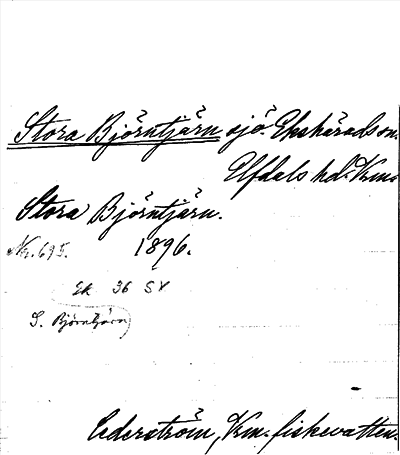 Stora Björntjärn sjö. Ekshärads sn.
Elfdals hd. Vrm.
Stora Björntjärn.
Nr. 695. 1896.
Ek 36 SV
S. Björntjärn
Cederström, Vrm. fiskevatten.